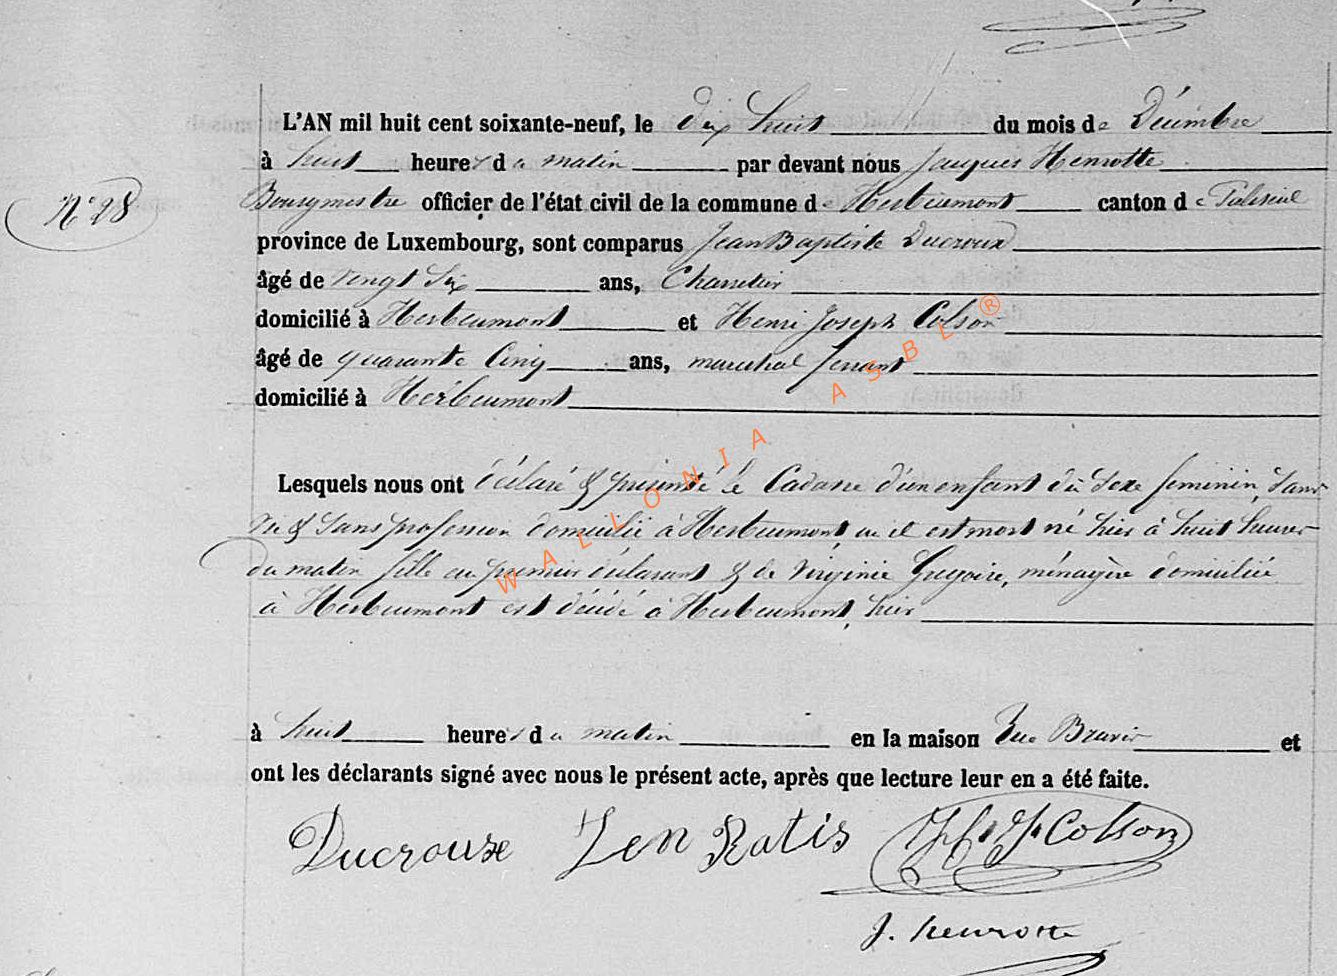 L'AN mil huit cent soixante-neuf, le dix huit du mois de Décembre
à huit heures du matin par devant nous Jacques Henrotte
N° 28
Bourgmestre officier de l'état civil de la commune de Herbeumont canton de Paliseul
province de Luxembourg, sont comparus Jean Baptiste Ducroux
âgé de vengt six ans, Charretier
domicilié à Herbeumont et Henri Joseph Colson
âgé de quarante Cinq ans, marechal ferrant
domicilié à Herbeumont
Lesquels nous ont déclaré & présenté le Cadavre d'un enfant du sexe feminin, sans
vie & sans profession domicilié à Herbeumont, ou il est mort né hier à huit heures
du matin fille du premier déclarant & de Virginie Gregoire, ménagère domiciliée
à Herbeumont est décédé à Herbeumont, hier
à huit heures du matin en la maison Rue Bravis et
ont les déclarants signé avec nous le présent acte, après que lecture leur en a été faite.
Ducrouxe Jen Batis H. J. Colson
J. henrotte
WALLONIA ASBL ®